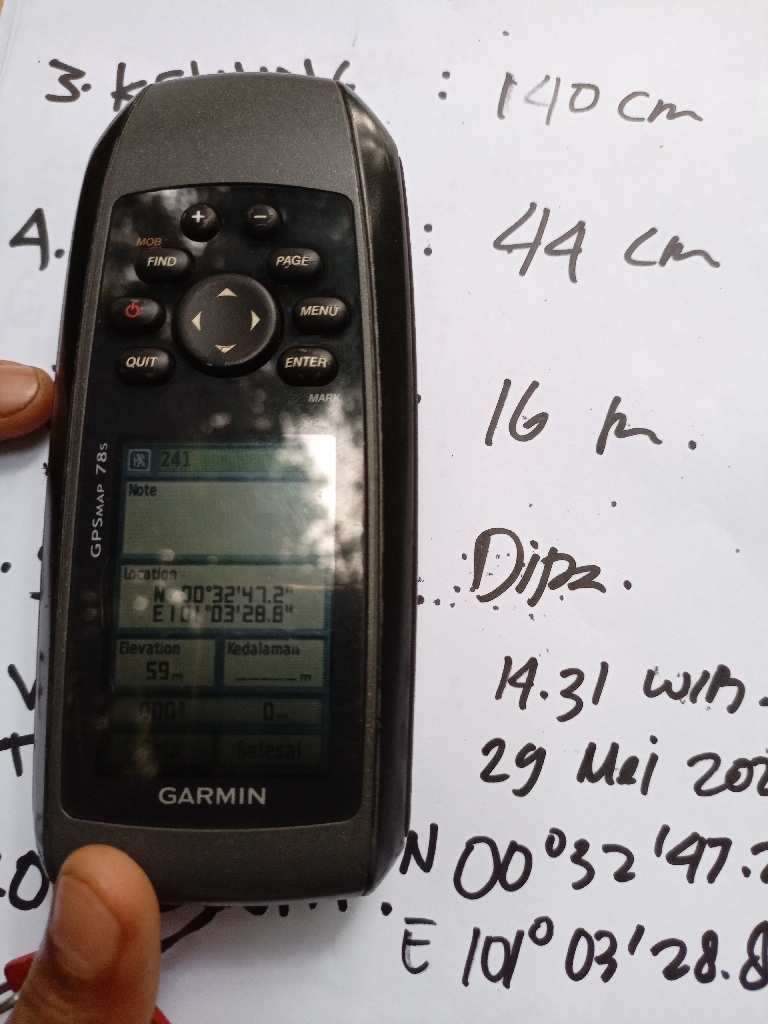 3.
: 140 cm
4.
: 44 cm
16 m.
Dipz.
14.31 WIB.
29 Mei 202
N 00°32'47.2
E 101° 03'28.8
+
−
MOB
FIND
PAGE
MENU
QUIT
ENTER
MARK
GPSMAP 78s
241
Note
Location
N 00°32'47.2"
E101°03'28.8"
Elevation
59m
Kedalaman
_______m
000°
0m
Peta
Selesai
GARMIN